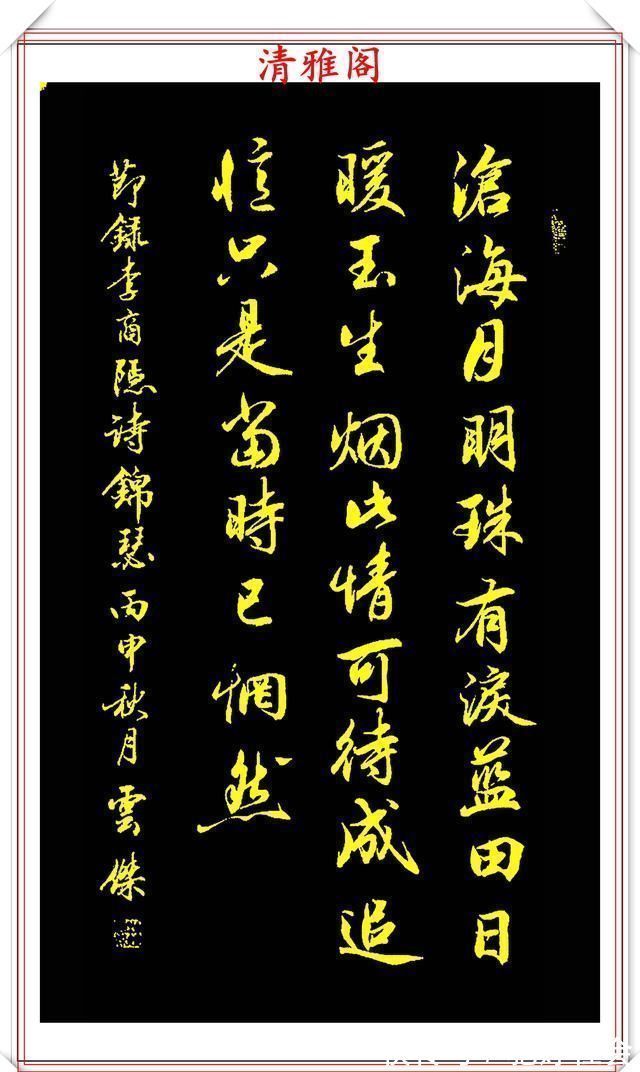 清雅阁
滄海月明珠有淚藍田日
暖玉生烟此情可待成追
憶只是當時已惘然
節録李商隱诗錦瑟丙申秋月雲傑